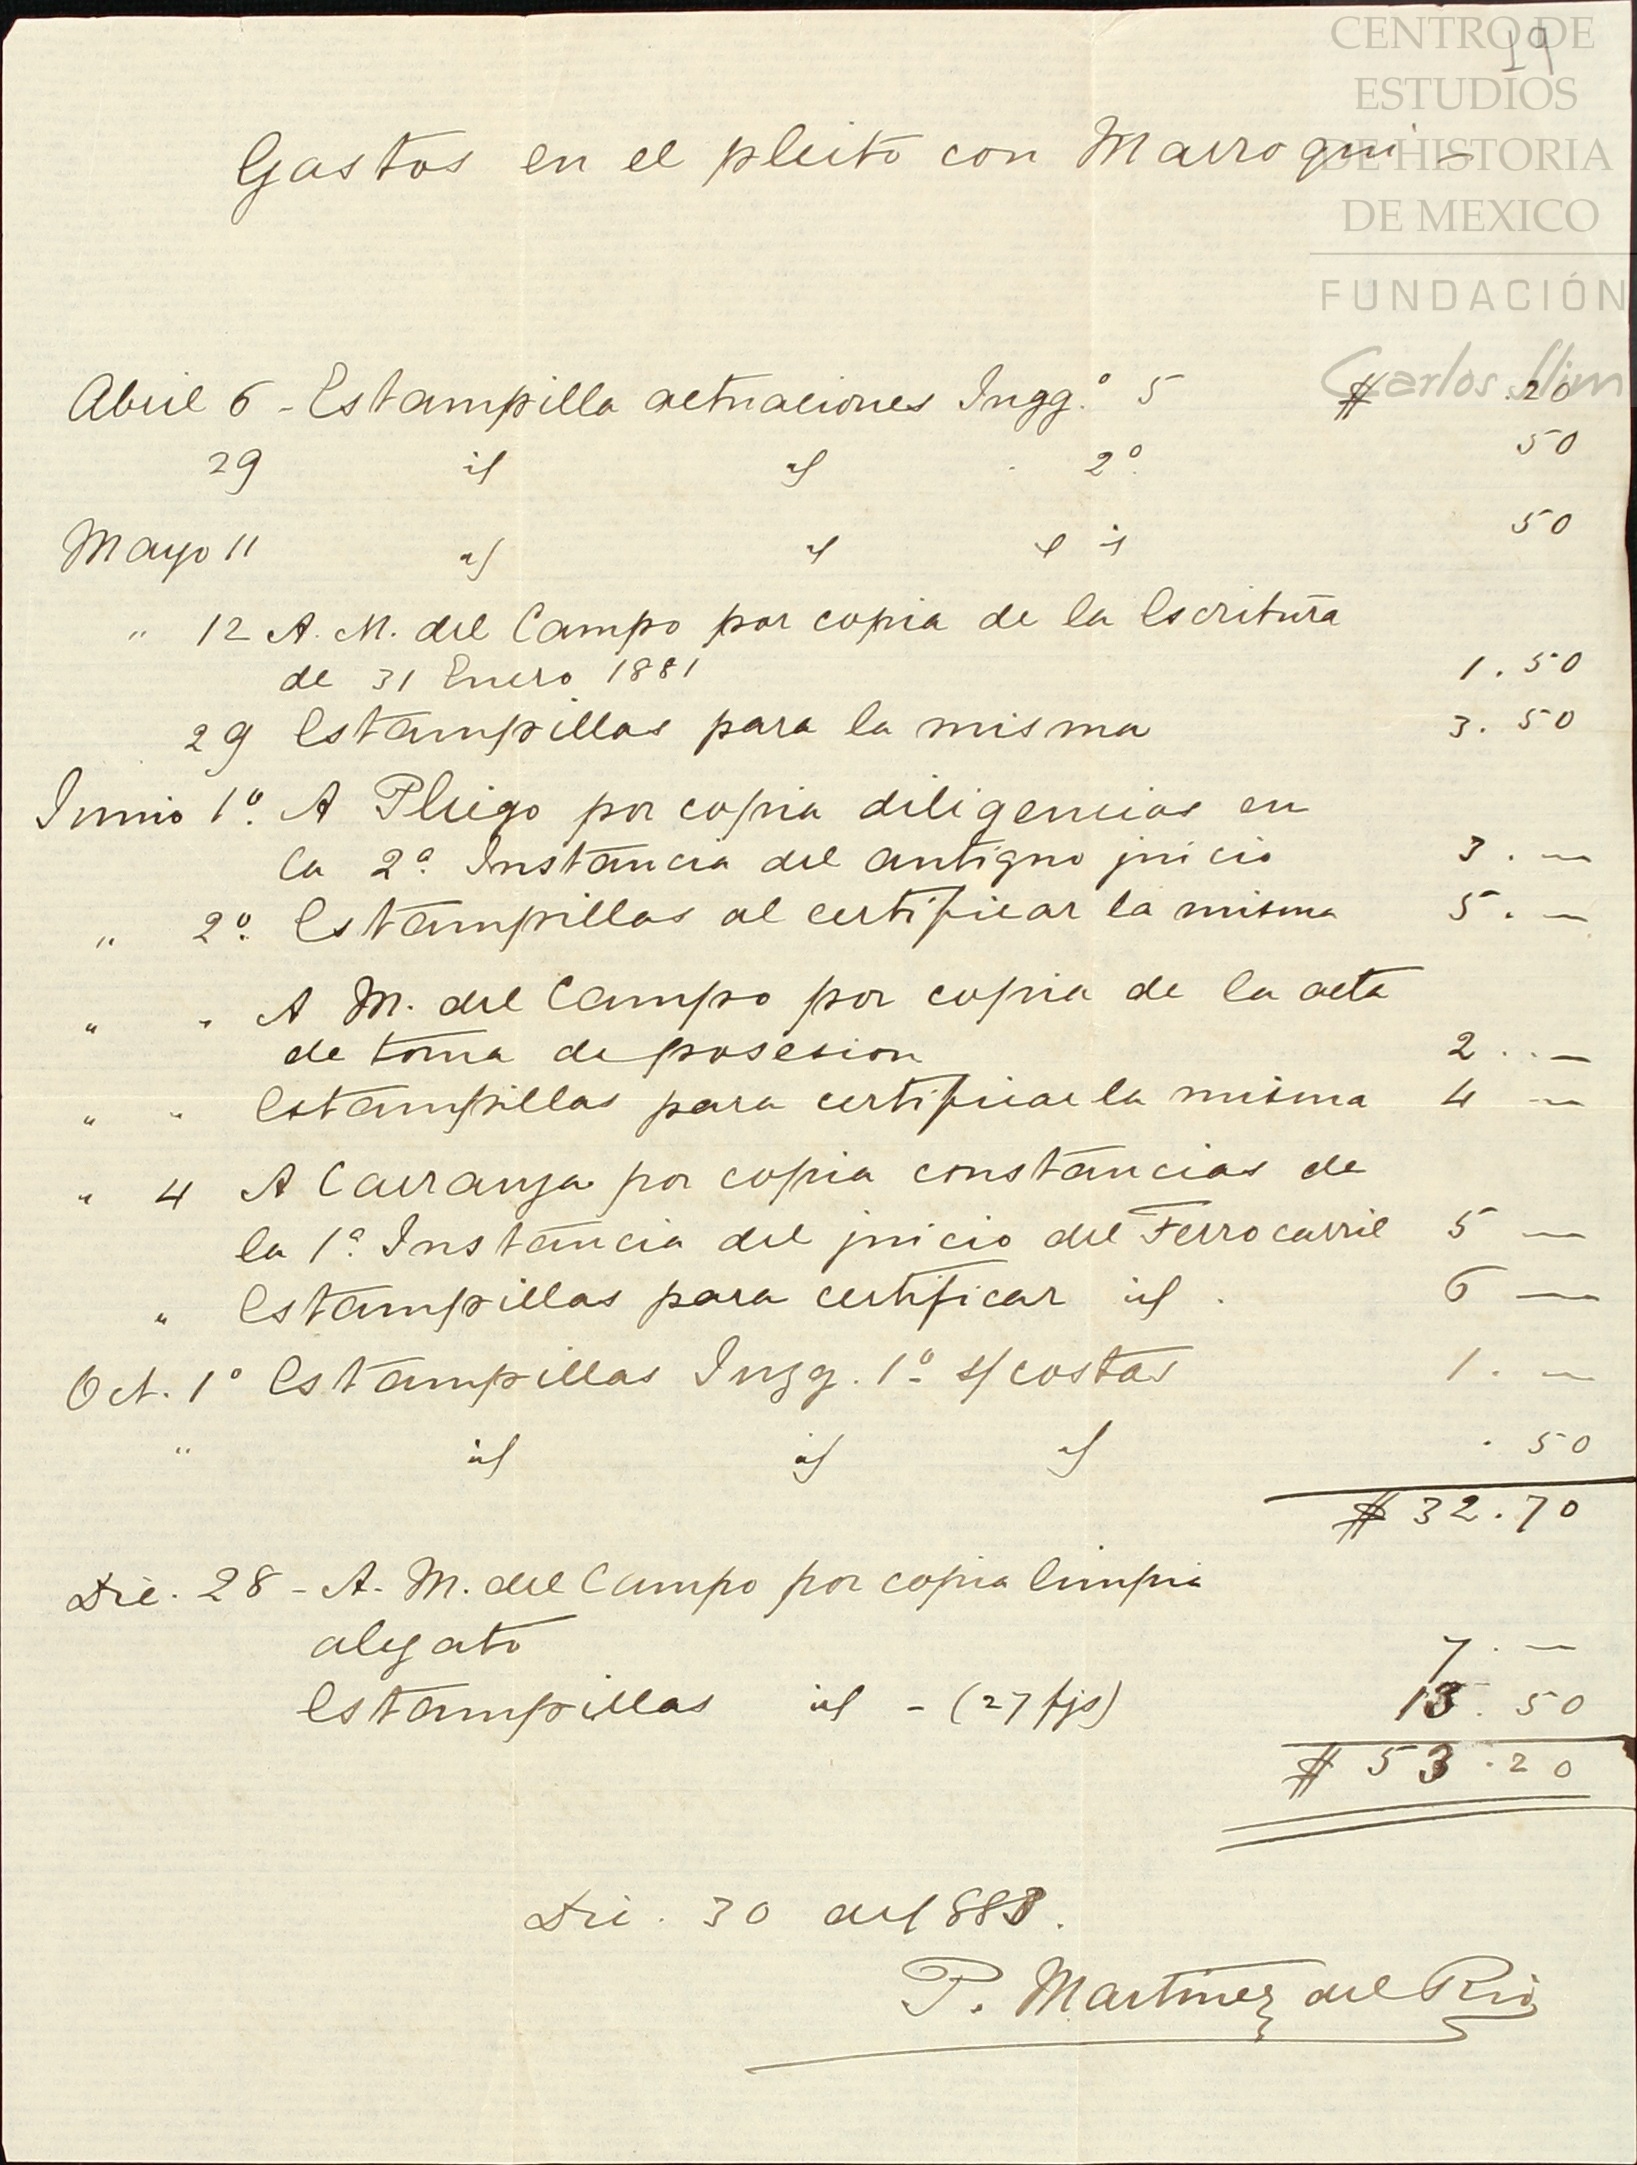 CENTRO DE
ESTUDIOS
DE HISTORIA
DE MEXICO
FUNDACIÓN
Carlos Slim
19
Gastos en el pleito con Marroqui -
Abril 6 - Estampilla actuaciones Juzg.º 5 $ .20
29 id id 2º 50
Mayo 11 id id id id 50
" 12 A. M. del Campo por copia de la Escritura
de 31 Enero 1881 1.50
29 Estampillas para la misma 3.50
Junio 1º. A Pliego por copia diligencias en
la 2ª. Instancia del antiguo juicio 3. —
" 2º. Estampillas al certificar la misma 5. —
" " A M. del Campo por copia de la acta
de toma de posesion 2.. —
" " Estampillas para certificar la misma 4 —
" 4 A Carranza por copia constancias de
la 1ª. Instancia del juicio del Ferrocarril 5 —
" Estampillas para certificar id. 6 —
Oct. 1º Estampillas Juzg. 1º s/ costas 1. —
" id id id .50
$ 32.70
Dic. 28 - A. M. del Campo por copia limpia
alegato 7. —
Estampillas id - (27 fjs) 13.50
$ 53.20
Dic. 30 de 1883.
P. Martinez del Rio